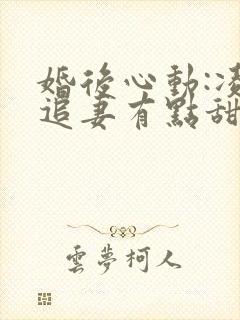 婚後心動:凌
追妻有點甜
雲夢柯人